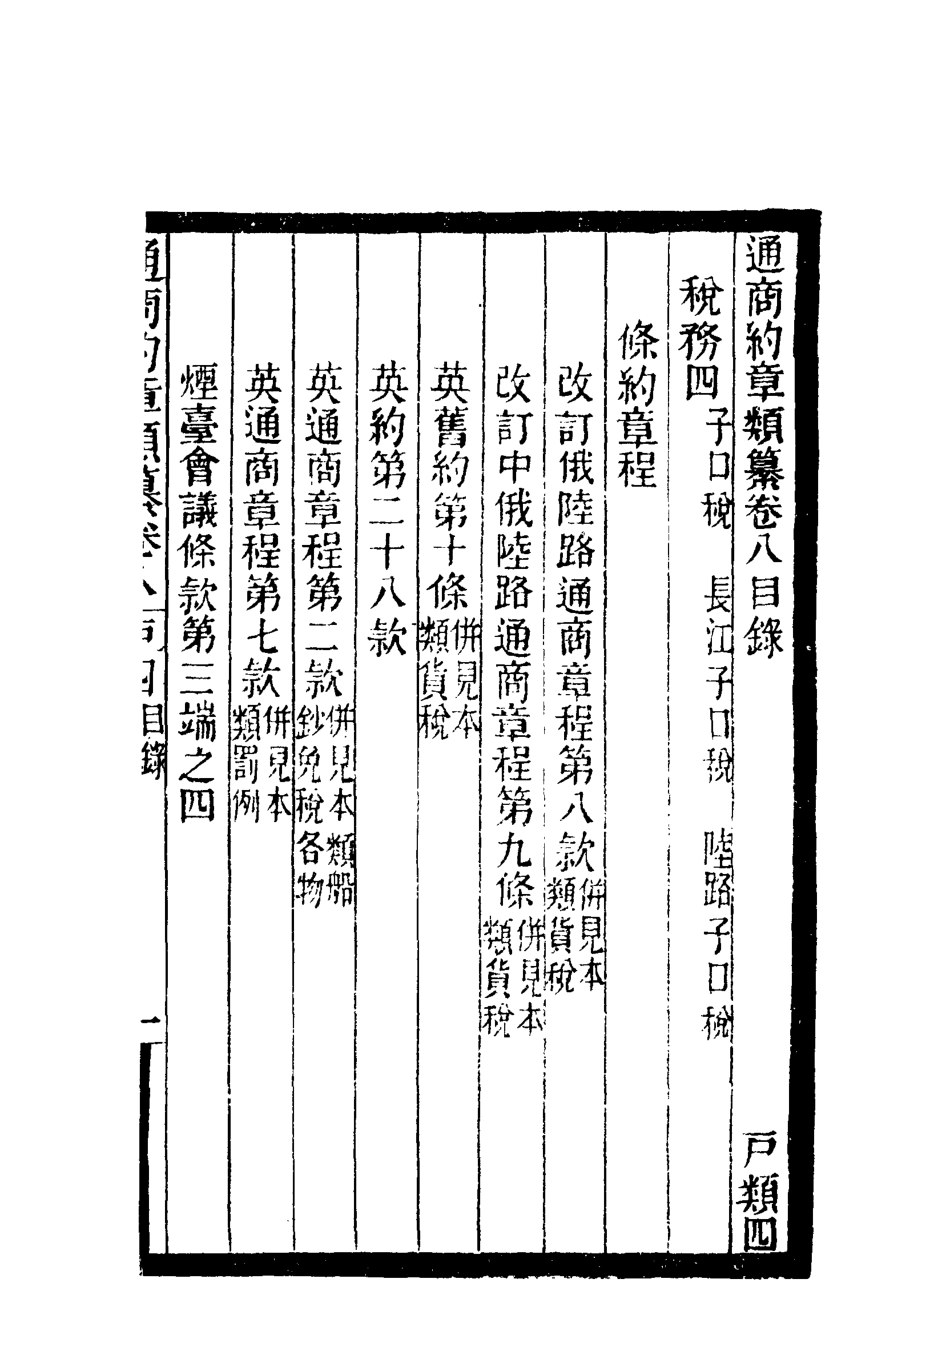 通商約章類纂卷八目錄　戶類四
稅務四　子口稅　長江子口稅　陸路子口稅
條約章程
改訂俄陸路通商章程第八款併見本類貨稅
改訂中俄陸路通商章程第九條併見本類貨稅
英舊約第十條併見本類貨稅
英約第二十八款
英通商章程第二款併見本類船鈔免稅各物
英通商章程第七款併見本類罰例
煙臺會議條款第三端之四
通商約章類纂卷八　戶四目錄　一